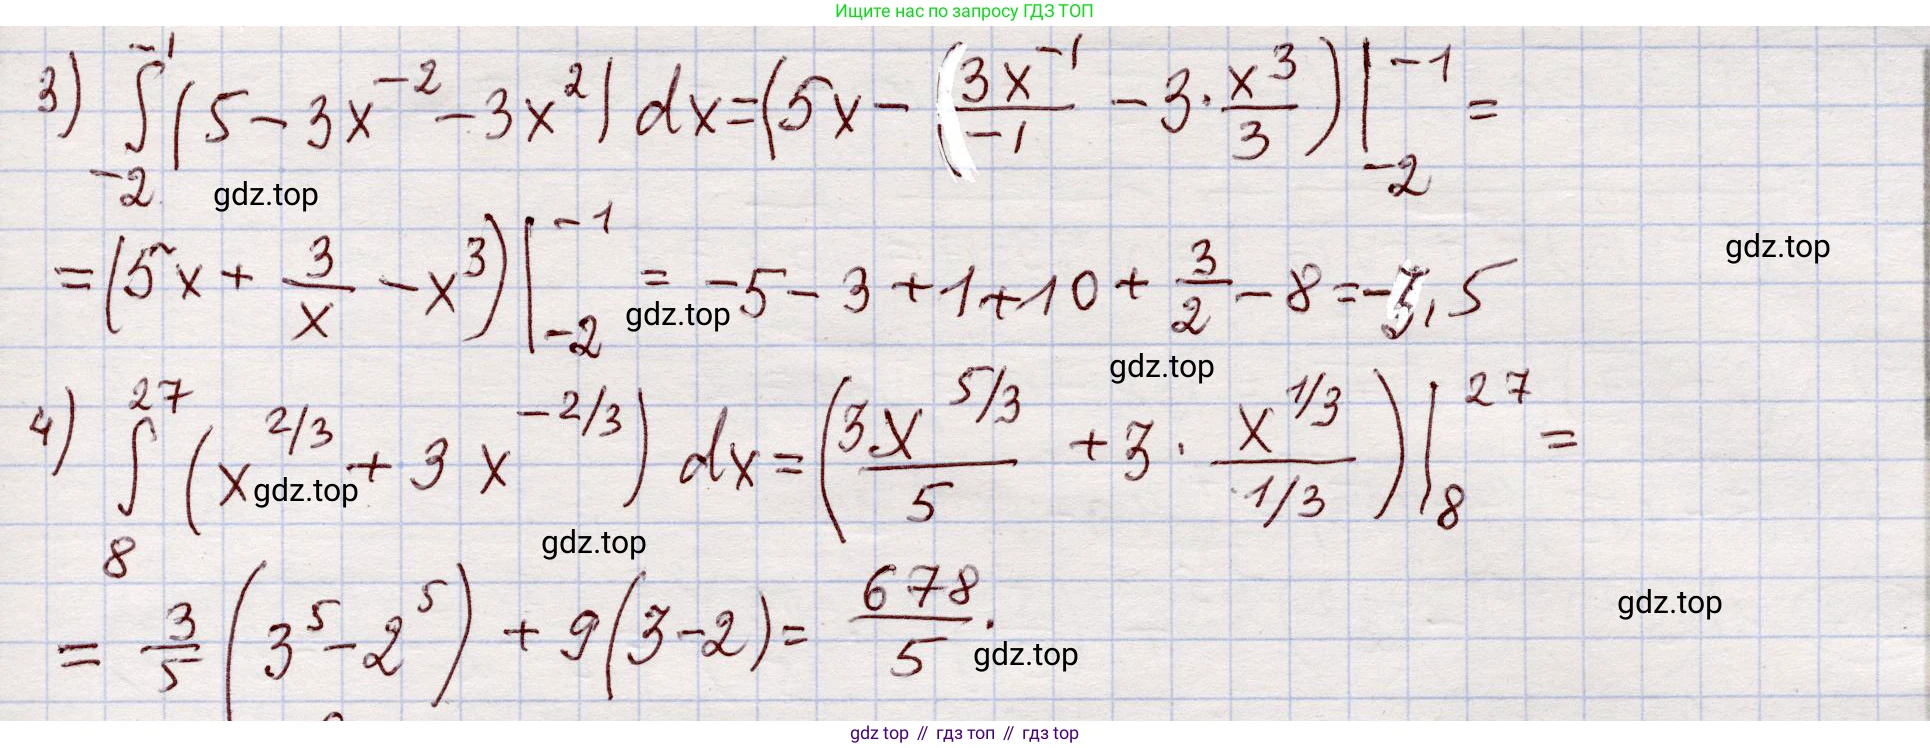 Ищите нас по запросу ГДЗ ТОП
3) ∫_{-2}^{-1} (5 - 3x^{-2} - 3x^2) dx = (5x - (3x^{-1}/-1 - 3 · x^3/3) |_{-2}^{-1} =
gdz.top
= (5x + 3/x - x^3) |_{-2}^{-1} = -5 - 3 + 1 + 10 + 3/2 - 8 = -3,5
gdz.top
gdz.top
gdz.top
4) ∫_8^{27} (x^{2/3} + 3x^{-2/3}) dx = (3x^{5/3}/5 + 3 · x^{1/3}/1/3) |_8^{27} =
gdz.top
gdz.top
= 3/5 (3^5 - 2^5) + 9(3 - 2) = 678/5.
gdz.top
gdz.top
gdz top // гдз топ // гдз top